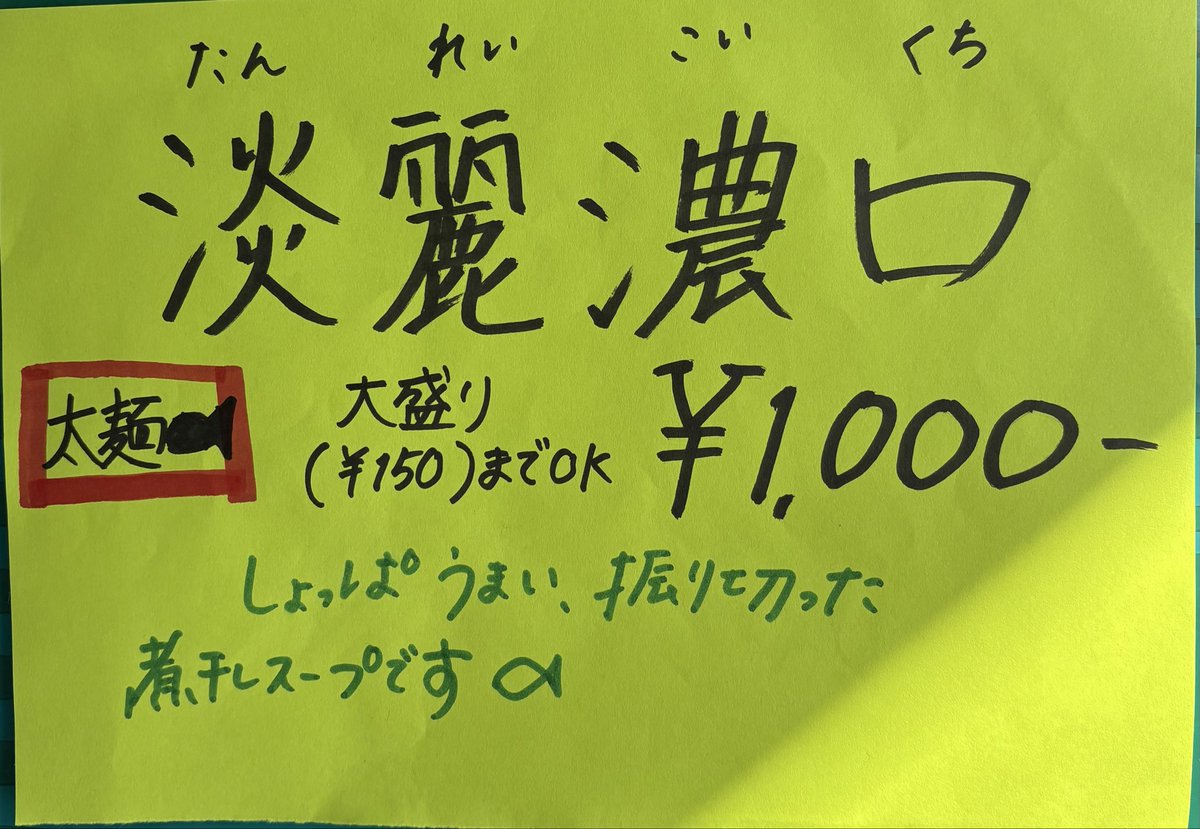 たん れい こい くち
淡麗濃口
太麺
大盛り
(¥150)までOK
¥1,000-
しょっぱうまい、振り切った
煮干しスープです